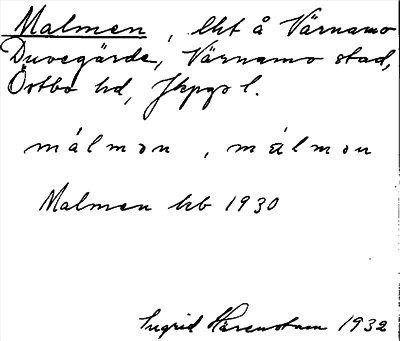 Malmen, lht å Värnamo
Duvegärde, Värnamo stad,
Östbo hd, Jkpgs l.
málmǝn, mälmǝn
Malmen kb 1930
Ingrid Harenstam 1932